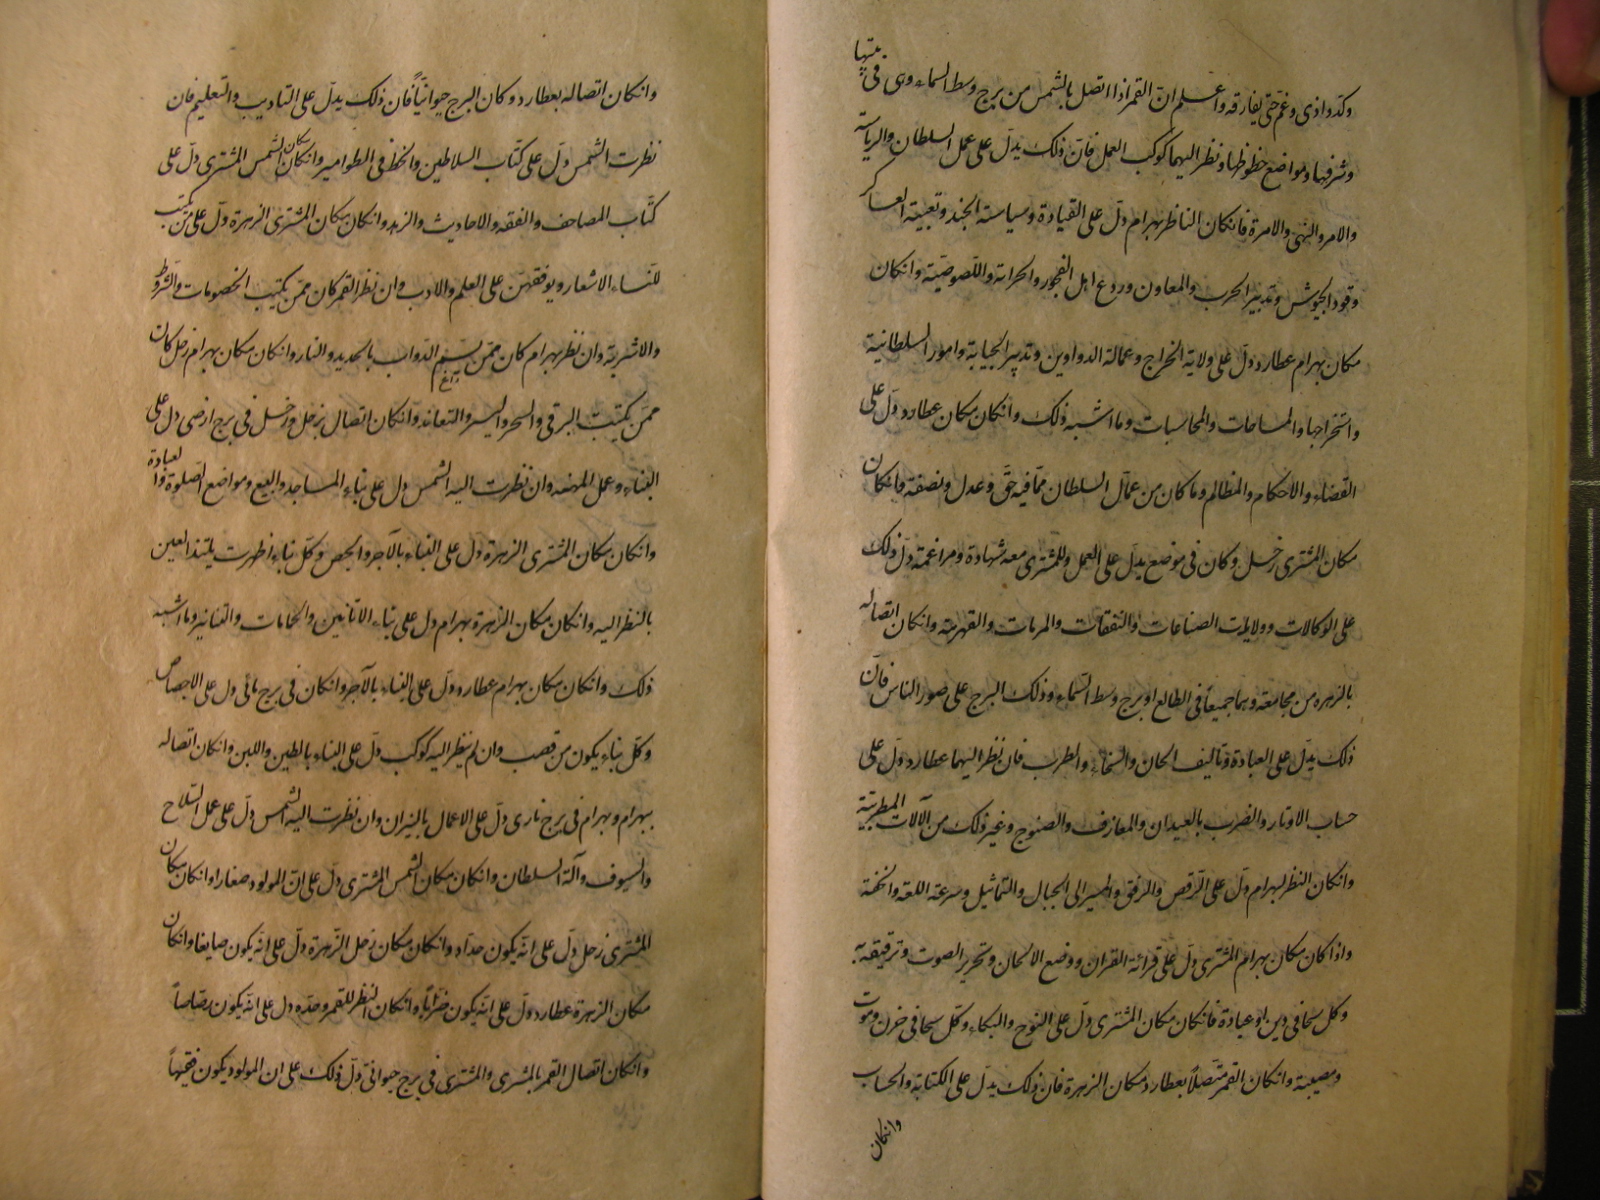 وكد واذى وغم حتى يفارقه واعلم ان القمر اذا اتصل بالشمس من برج وسط السماء وهى فى بيتها
وشرفها ومواضع حظوظها ونظر اليهما كوكب العمل فان ذلك يدل على عمل السلطان والرياسة
والامر والنهى والامرة فانكان الناظر بهرام دل على القيادة وسياسة الجند وتعبية العساكر
وقود الجيوش وتدبير الحرب والمعاون وردع اهل الفجور والحرابة واللصوصية وانكان
مكان بهرام عطارد دل على ولاية الخراج وعمالة الدواوين وتدبير الجباية وامور السلطانية
واستخراجها والمساحات والمحاسبات وما اشبه ذلك وانكان مكان عطارد دل على
القضاء والاحكام والمظالم وما كان من عمال السلطان مما فيه حق وعدل ونصفة وانكان
مكان المشترى زحل وكان فى موضع يدل على العمل وللمشترى معه شهادة ومزاعمة دل ذلك
على الوكالات وولايات الصناعات والنفقات والمرمات والقهرمة وانكان اتصاله
بالزهره من مجامعته وهما جميعا فى الطالع او برج وسط السماء وذلك البرج على صور الناس فان
ذلك يدل على العبادة وتاليف الحان والسخاء والطرب فان نظر اليهما عطارد دل على
حساب الاوتار والضرب بالعيدان والمعازف والصنوج وغير ذلك من الآلات المطربة
وانكان النظر لبهرام دل على الرقص والرفق والسير الى الجبال والتماثيل وسرعة اللقة والخفة
واذا كان مكان بهرام المشترى دل على قرائة القران ووضع الالحان وتحرير الصوت وترقيقه به
وكل سحا فى دين او عبادة فانكان مكان المشترى دل على النوح والبكاء وكل سحا فى حزن وموت
ومصيبة وانكان القمر متصلا بعطارد مكان الزهرة فان ذلك يدل على الكتابة والحساب
وانكان
وانكان اتصاله بعطارد وكان البرج حيوانيا فان ذلك يدل على التاديب والتعليم فان
نظرت الشمس دل على كتاب السلاطين والخط فى الطوامير وانكان مكان الشمس المشترى دل على
كتاب المصاحف والفقه والاحاديث والزهد وانكان مكان المشترى الزهرة دل على من يكتب
للنساء الاشعار ويوفقهن على العلم والادب وان نظر القمر كان ممن يكتب الخصومات والشروط
والاشرية وان نظر بهرام كان ممن يسم الدواب بالحديد والنار وانكان مكان بهرام زحل كان
ممن يكتب الرقى والسحر والتعاند وانكان اتصال بزحل وزحل فى برج ارضى دل على
البناء وعمل المهنه وان نظرت اليه الشمس دل على بناء المساجد والبيع ومواضع الصلوة والعبادة
وانكان مكان المشترى الزهرة دل على البناء بالآجر والجص وكل بناء اظهرت يلتذ العين
بالنظر اليه وانكان مكان الزهرة بهرام دل على بناء الاتاتين والحمامات والتنانير وما اشبه
ذلك وانكان مكان بهرام عطارد دل على البناء بالآجر وانكان فى برج مائى دل على الاجصاص
وكل بناء يكون من قصب وان لم ينظر اليه كوكب دل على البناء بالطين واللبن وانكان اتصاله
ببهرام وبهرام فى برج نارى دل على الاعمال بالنيران وان نظرت اليه الشمس دل على عمل السلاح
والسيوف وآلة السلطان وانكان مكان الشمس المشترى دل على ان المولود صفارا وانكان مكان
المشترى زحل دل على انه يكون حداد وانكان مكان زحل الزهرة دل على انه يكون صايغا وانكان
مكان الزهرة عطارد دل على انه يكون ضرابا وانكان النظر للقمر وحده دل على انه يكون رصاصا
وانكان اتصال القمر بالمشترى والمشترى فى برج حيوانى دل ذلك على ان المولود يكون فقيها